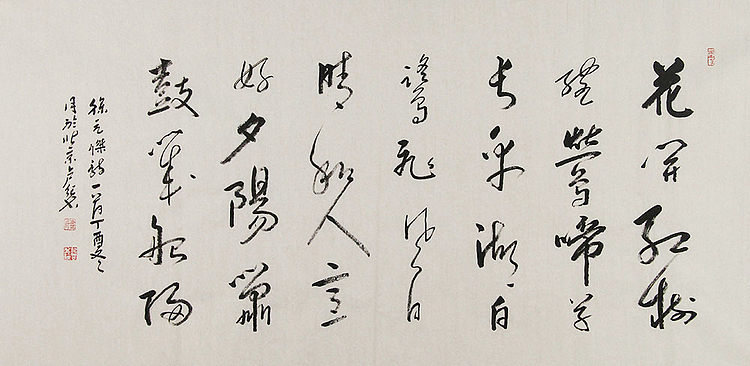 花開紅樹
亂鶯啼草
長平湖白
鷺飛風日
晴和人意
好夕陽簫
鼓幾船歸
徐元傑詩一首丁酉冬
月於北京